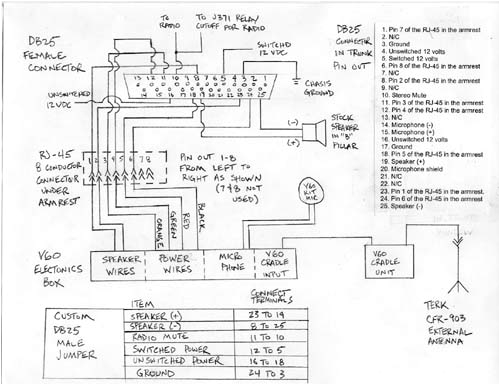 TO RADIO
TO J371 RELAY/
CUTOFF FOR RADIO
DB25
FEMALE
CONNECTOR
SWITCHED
12 VDC
UNSWITCHED
12 VDC
13 12 11 10 9 8 7 6 5 4 3 2 1
CHASIS
GROUND
DB25
CONNECTOR
IN TRUNK
PIN OUT
1. Pin 7 of the RJ-45 in the armrest
2. N/C
3. Ground
4. Unswitched 12 volts
5. Switched 12 volts
6. Pin 8 of the RJ-45 in the armrest
7. N/C
8. Pin 2 of the RJ-45 in the armrest
9. N/C
10. Stereo Mute
11. Pin 3 of the RJ-45 in the armrest
12. Pin 4 of the RJ-45 in the armrest
13. N/C
14. Microphone (-)
15. Microphone (+)
16. Unswitched 12 volts
17. Ground
18. Pin 5 of the RJ-45 in the armrest
19. Speaker (+)
20. Microphone shield
21. N/C
22. N/C
23. Pin 1 of the RJ-45 in the armrest.
24. Pin 6 of the RJ-45 in the armrest
25. Speaker (-)
(-)
(+)
STOCK
SPEAKER
IN "B"
PILLAR
RJ-45
8 CONDUCTOR
CONNECTOR
UNDER
ARMREST
1 2 3 4 5 6 7 8
PIN OUT 1-8
FROM LEFT TO
RIGHT AS SHOWN
(7 & 8 NOT
USED)
ORANGE
GREEN
RED
BLACK
V60
KIT
MIC
V60
ELECTONICS
BOX
SPEAKER
WIRES
POWER
WIRES
MICRO
PHONE
V60
CRADLE
INPUT
V60
CRADLE
UNIT
TERK
CFR-903
EXTERNAL
ANTENNA
CUSTOM
DB25
MALE
JUMPER
ITEM
CONNECT
TERMINALS
SPEAKER (+) 23 TO 19
SPEAKER (-) 8 TO 25
RADIO MUTE 11 TO 10
SWITCHED POWER 12 TO 5
UNSWITCHED POWER 16 TO 18
GROUND 24 TO 3